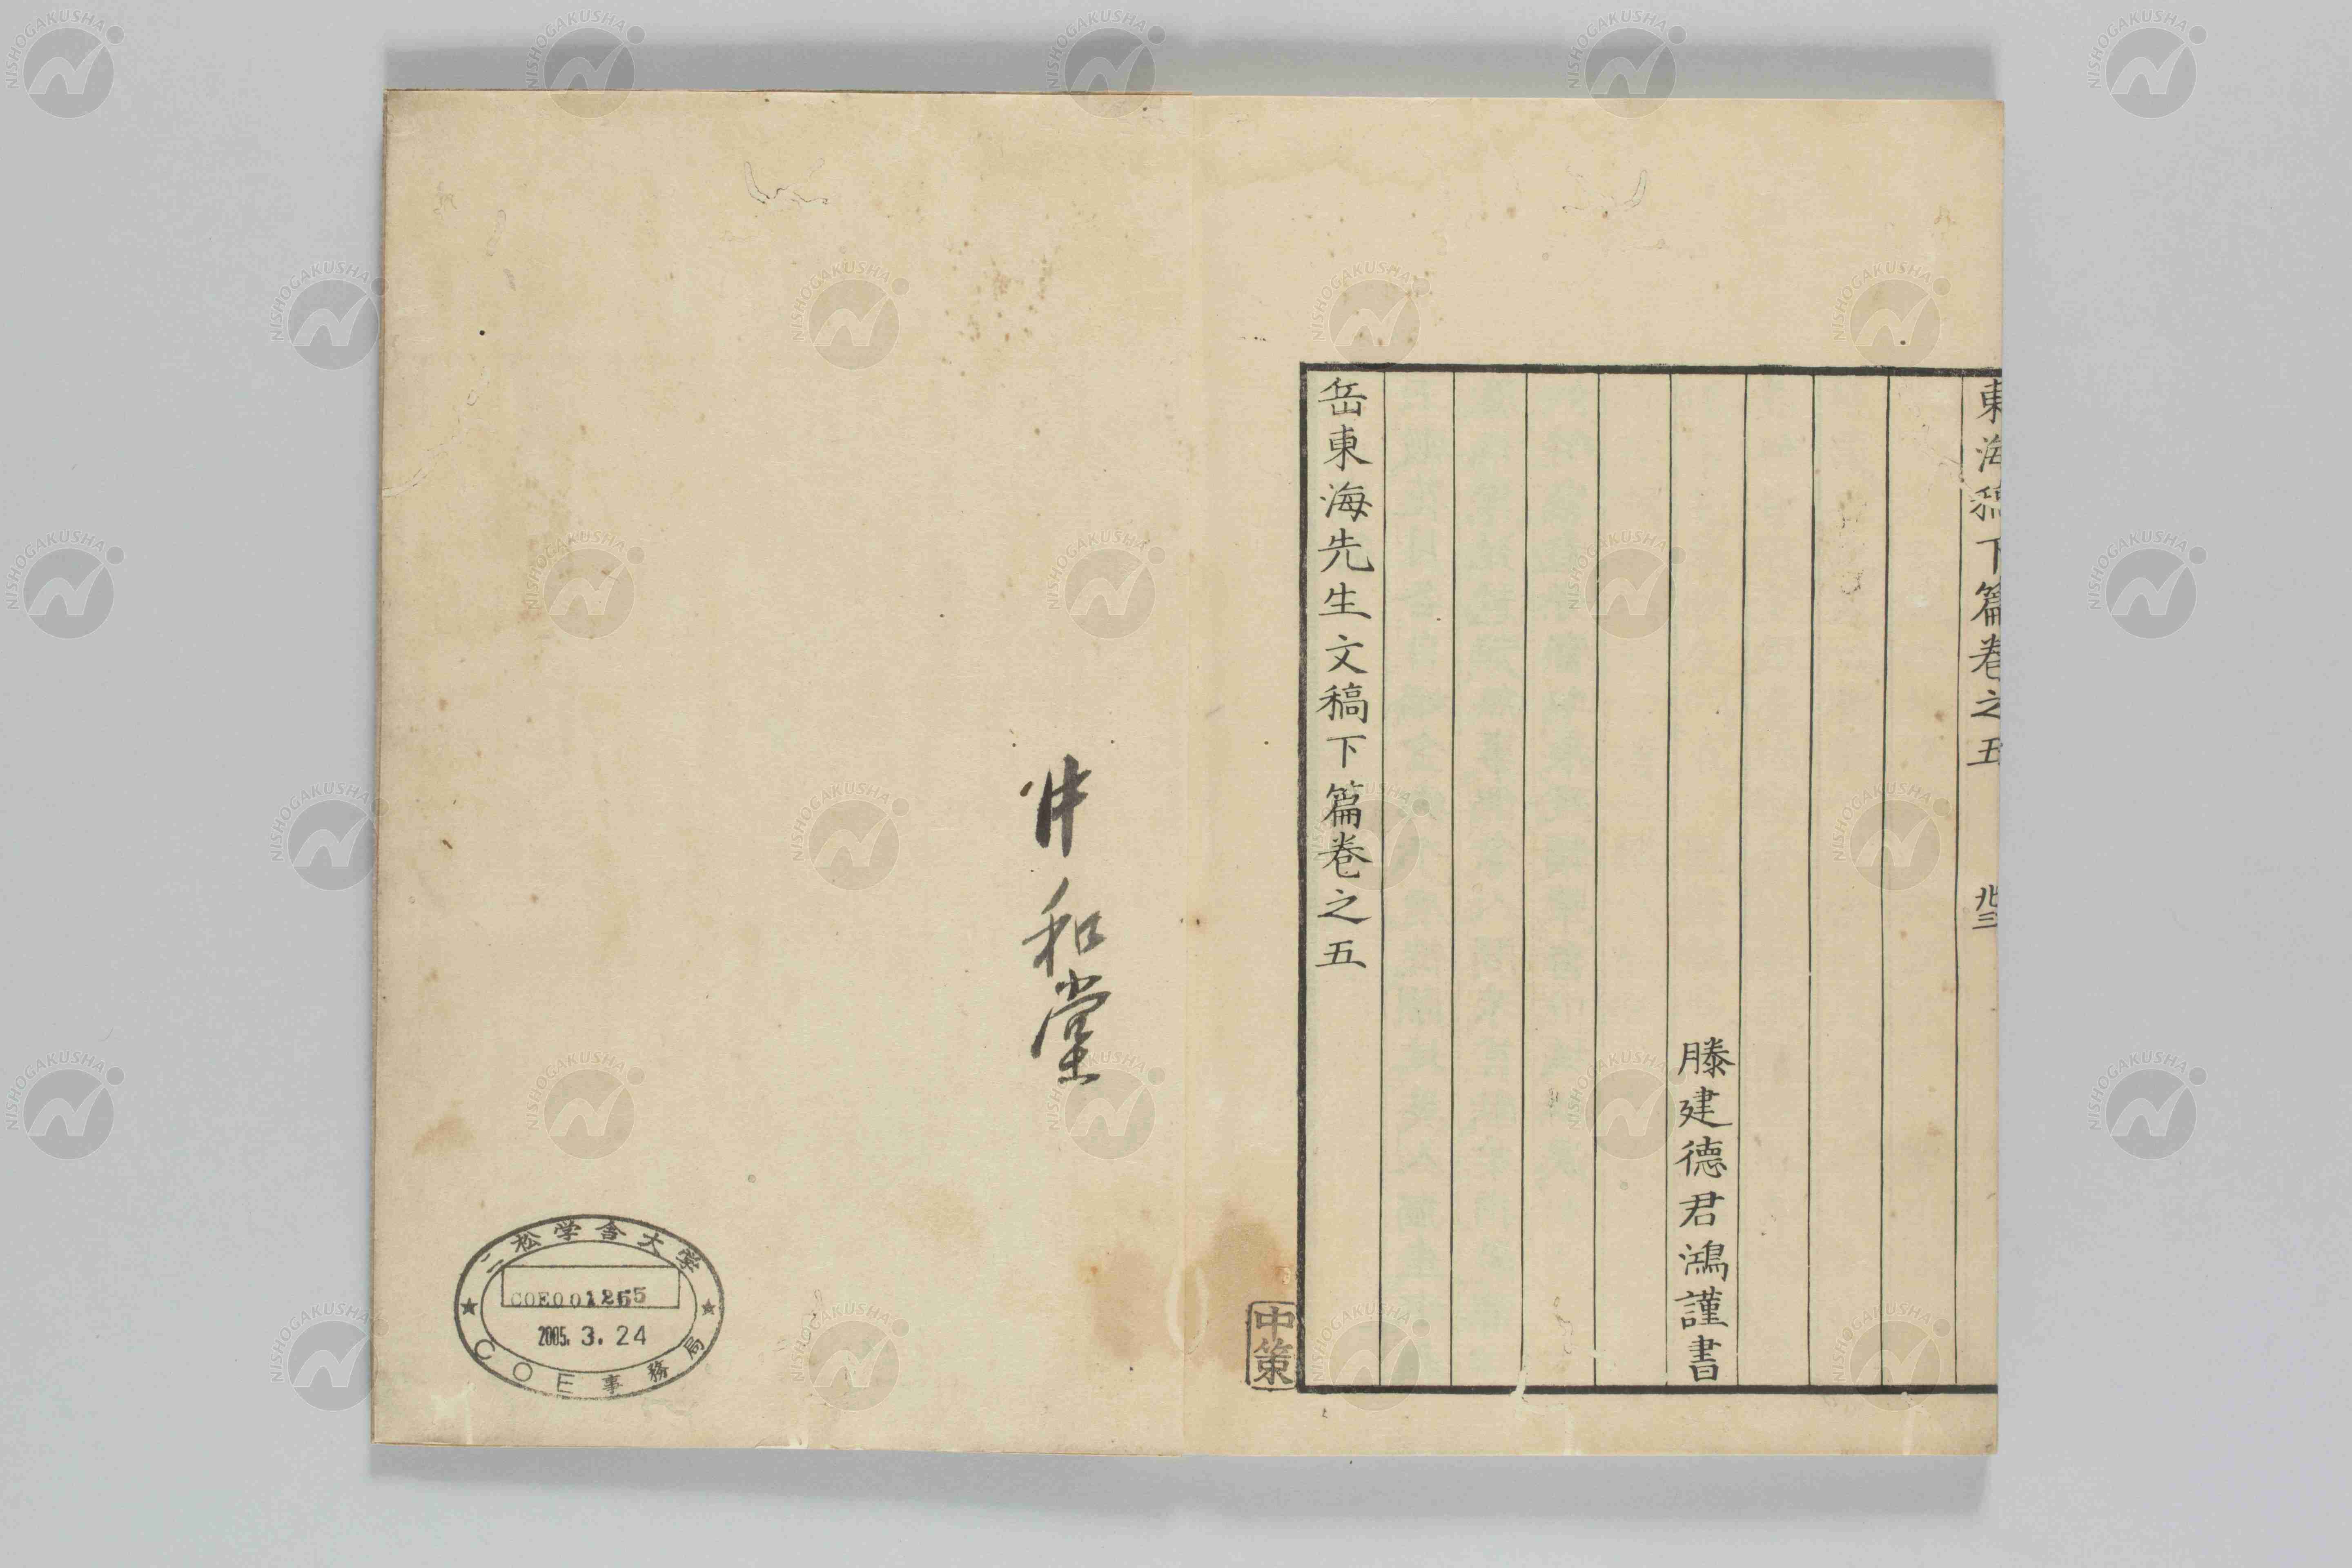 東海稿下篇卷之五
滕建德君鴻謹書
岳東海先生文稿下篇卷之五
中策
和堂
二松学舎大学
COE001265
2005. 3. 24
COE事務局
NISHOGAKUSHA